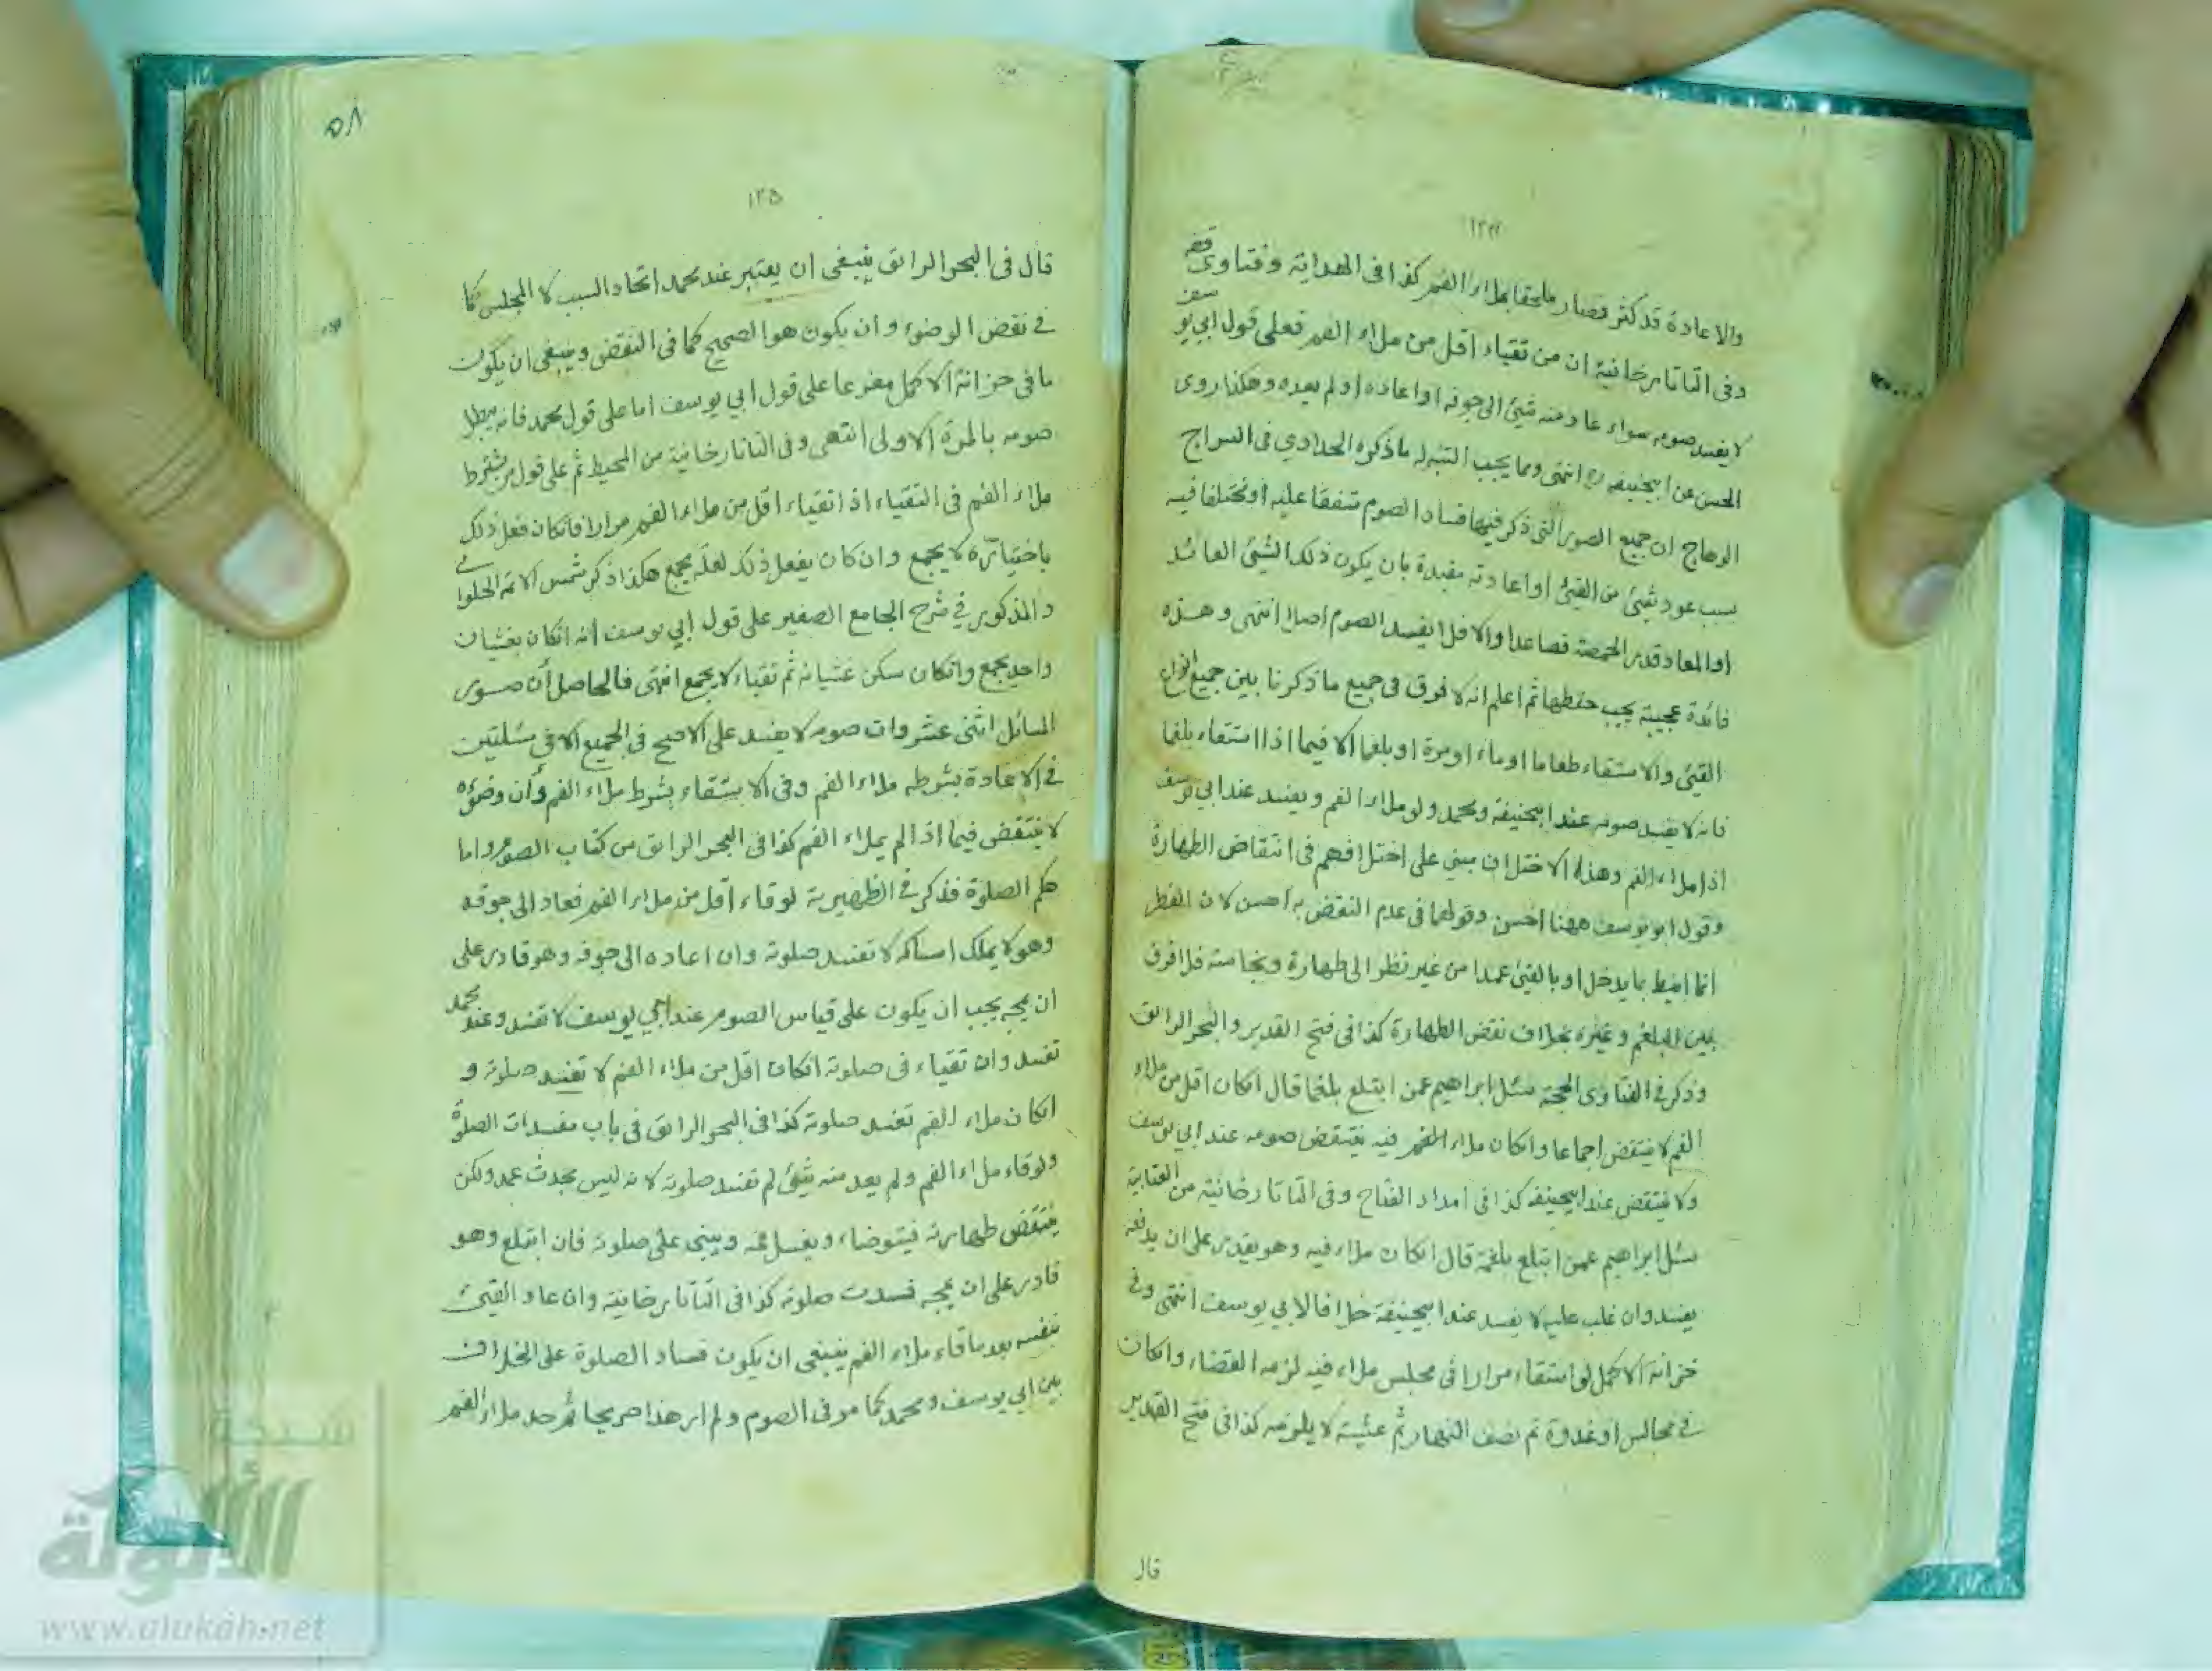 ١٢٤
والاعادة قد كثر فصار ملحقا بملاء الفم كذا فى الهداية وفتاوى
وفى التاتارخانية ان من تقياء اقل من ملاء الفم فعلى قول ابي يوسف
لا يفسد صومه سواء عاد منه شيئ الى جوفه او اعاده او لم يعده وهكذا روى
الحسن عن ابيحنيفه ره انتهى ومما يجب التنبه له ما ذكره الحدادي فى السراج
الوهاج ان جميع الصور التى ذكر فيها فساد الصوم متفقا عليه او مختلفا فيه
بسبب عود شيئ من القيئ او اعادته مقيدة بان يكون ذلك الشيئ العائد
او المعاد قدر الحمصة فصاعدا والا فلا يفسد الصوم اصلا انتهى وهذه
فائدة عجيبة يجب حفظها ثم اعلم انه لا فرق فى جميع ما ذكرنا بين جميع انواع
القيئ والاستقاء طعاما او ماء او مرة او بلغما الا فيما اذا استقاء بلغما
فانه لا يفسد صومه عند ابيحنيفة ومحمد ولو ملاء الفم ويفسد عند ابي يوسف
اذا ملاء الفم وهذا الاختلاف مبني على اختلافهم فى انتقاض الطهارة
وقول ابو يوسف ههنا احسن وقولهما فى عدم النقض به احسن لان الفطر
انما انيط بما يدخل او بالقيئ عمدا من غير نظر الى طهارة ونجاسة فلا فرق
بين البلغم وغيره بخلاف نقض الطهارة كذا فى فتح القدير والبحر الرائق
وذكر فى الفتاوى الحجة سئل ابراهيم عمن ابتلع بلغما قال انكان اقل من ملاء
الفم لا ينتقض اجماعا وانكان ملاء الفم فيه ينتقض صومه عند ابي يوسف
ولا ينتقض عند ابيحنيفه كذا فى امداد الفتاح وفى التاتارخانية من العتابية
سئل ابراهيم عمن ابتلع بلغمة قال انكان ملاء فيه وهو يقدر على ان يدفعه
يفسد وان غلب عليه لا يفسد عند ابيحنيفة خلافا لابي يوسف انتهى وفى
خزانة الاكمل لو استقاء مرارا فى مجلس ملاء فيه لزمه القضاء وانكان
فى مجالس او غدوة ثم نصف النهار ثم عشية لا يلزمه كذا فى فتح القدير
قال
٥٨
١٢٥
قال فى البحر الرائق ينبغى ان يعتبر عند محمد اتحاد السبب لا المجلس كما
فى نقض الوضوء وان يكون هو الصحيح كما فى النقض وينبغى ان يكون
ما فى خزانة الاكمل مفرعا على قول ابي يوسف اما على قول محمد فانه يبطل
صومه بالمرة الاولى انتهى وفى التاتارخانية من المحيط ثم على قول من يشترط
ملاء الفم فى التقياء اذا تقياء اقل من ملاء الفم مرارا فانكان فعل ذلك
باختياره لا يجمع وان كان يفعل ذلك لعلة يجمع هكذا ذكر شمس الائمة الحلوانى
والمذكور في شرح الجامع الصغير على قول ابي يوسف انه انكان بغشيان
واحد يجمع وانكان سكن غشيانه ثم تقياء لا يجمع انتهى فالحاصل ان صور
المسائل اثنى عشر وان صومه لا يفسد على الاصح فى الجميع الا فى مسئلتين
فى الاعادة بشرط ملاء الفم وفى الاستقاء بشرط ملاء الفم وأن وضوءه
لا ينتقض فيما اذا لم يملاء الفم كذا فى البحر الرائق من كتاب الصوم واما
حكم الصلوة فذكر فى الظهيرية لو قاء اقل من ملاء الفم فعاد الى جوفه
وهو لا يملك امساكه لا تفسد صلوته وان اعاده الى جوفه وهو قادر على
ان يمجه يجب ان يكون على قياس الصوم عند ابي يوسف لا تفسد وعند محمد
تفسد وان تقياء فى صلوته انكان اقل من ملاء الفم لا تفسد صلوته و
انكان ملاء الفم تفسد صلوته كذا فى البحر الرائق فى باب مفسدات الصلوة
ولو قاء ملاء الفم ولم يعد منه شيئ لم تفسد صلوته لانه ليس بحدث عمد ولكن
ينتقض طهارته فيتوضاء ويغسل فمه ويبنى على صلوته فان ابتلع وهو
قادر على ان يمجه فسدت صلوته كذا فى التاتارخانية وان عاد القيئ
بنفسه بعد ما قاء ملاء الفم ينبغى ان يكون فساد الصلوة على الخلاف
بين ابي يوسف ومحمد كما مر فى الصوم ولم ار هذا صريحا ثم حد ملاء الفم
شبكة
الألوكة
www.alukah.net